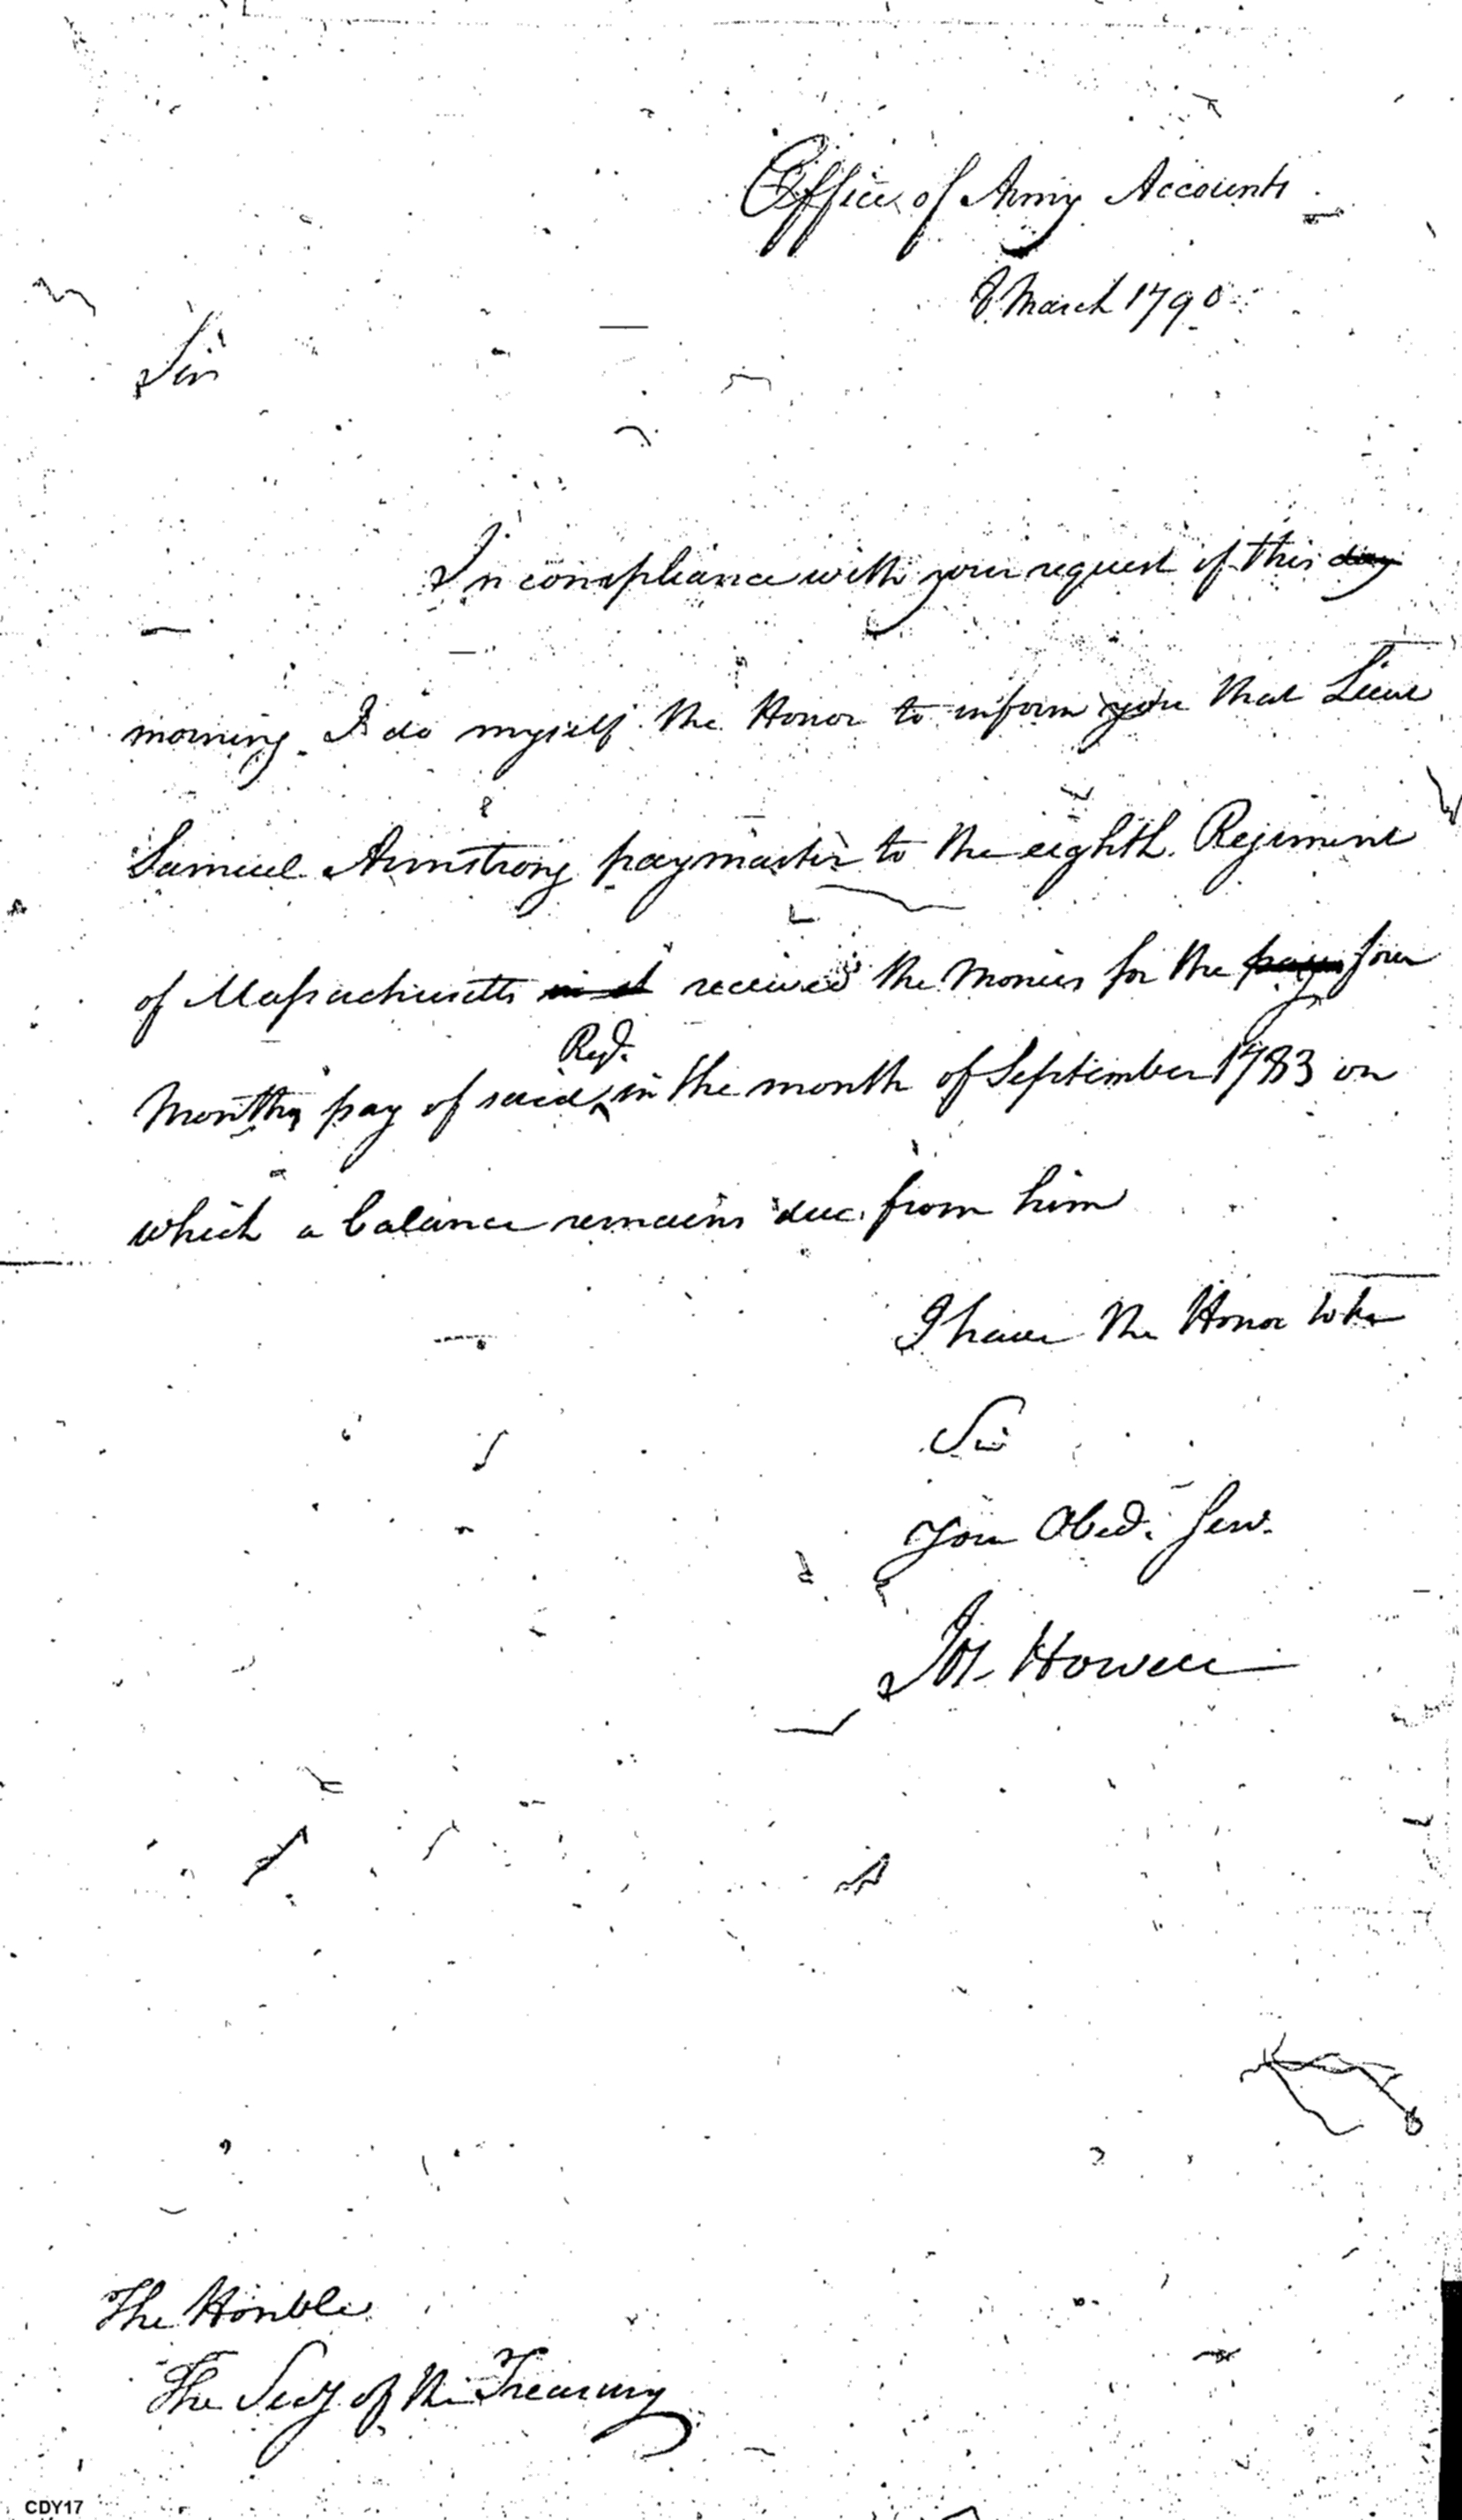 Office of Army Accounts
8 March 1790
Sir
In compliance with your request of this day
morning I do myself the Honor to inform you that Lieut
Samuel Armstrong paymaster to the eighth Regiment
of Massachusetts received the Monies for the pay four
Months pay of said Regt. in the month of September 1783 on
which a balance remains due from him
I have the Honor to be
Sir
Your Obed. Serv.
Jos. Howell
The Honble
The Secy of the Treasury
CDY17